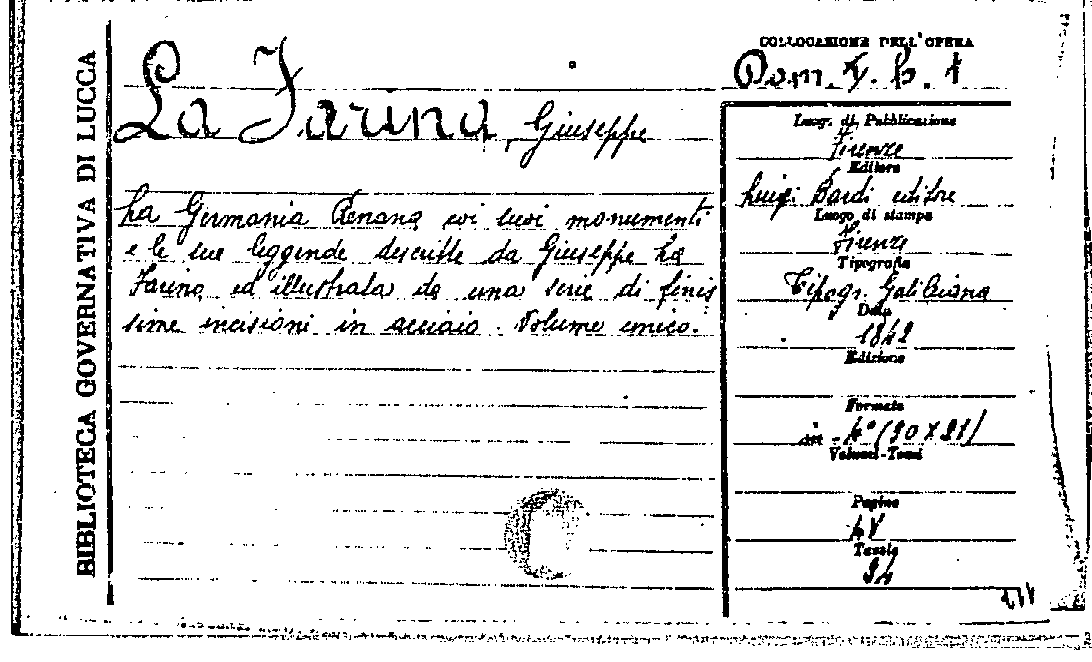 BIBLIOTECA GOVERNATIVA DI LUCCA
La Farina, Giuseppe
La Germania Renana coi suoi monumenti
e le sue leggende descritte da Giuseppe La
Farina ed illustrata da una serie di finis
sime incisioni in acciaio. Volume unico.
COLLOCAZIONE DELL'OPERA
Luog. di Pubblicazione
Firenze
Editore
Luigi Bardi editore
Luogo di stampa
Firenze
Tipografia
Tipogr. Galileiana
Data
1842
Edizione
Formato
in - 4° (30 X 21)
Volumi-Tomi
Pagine
Tavole